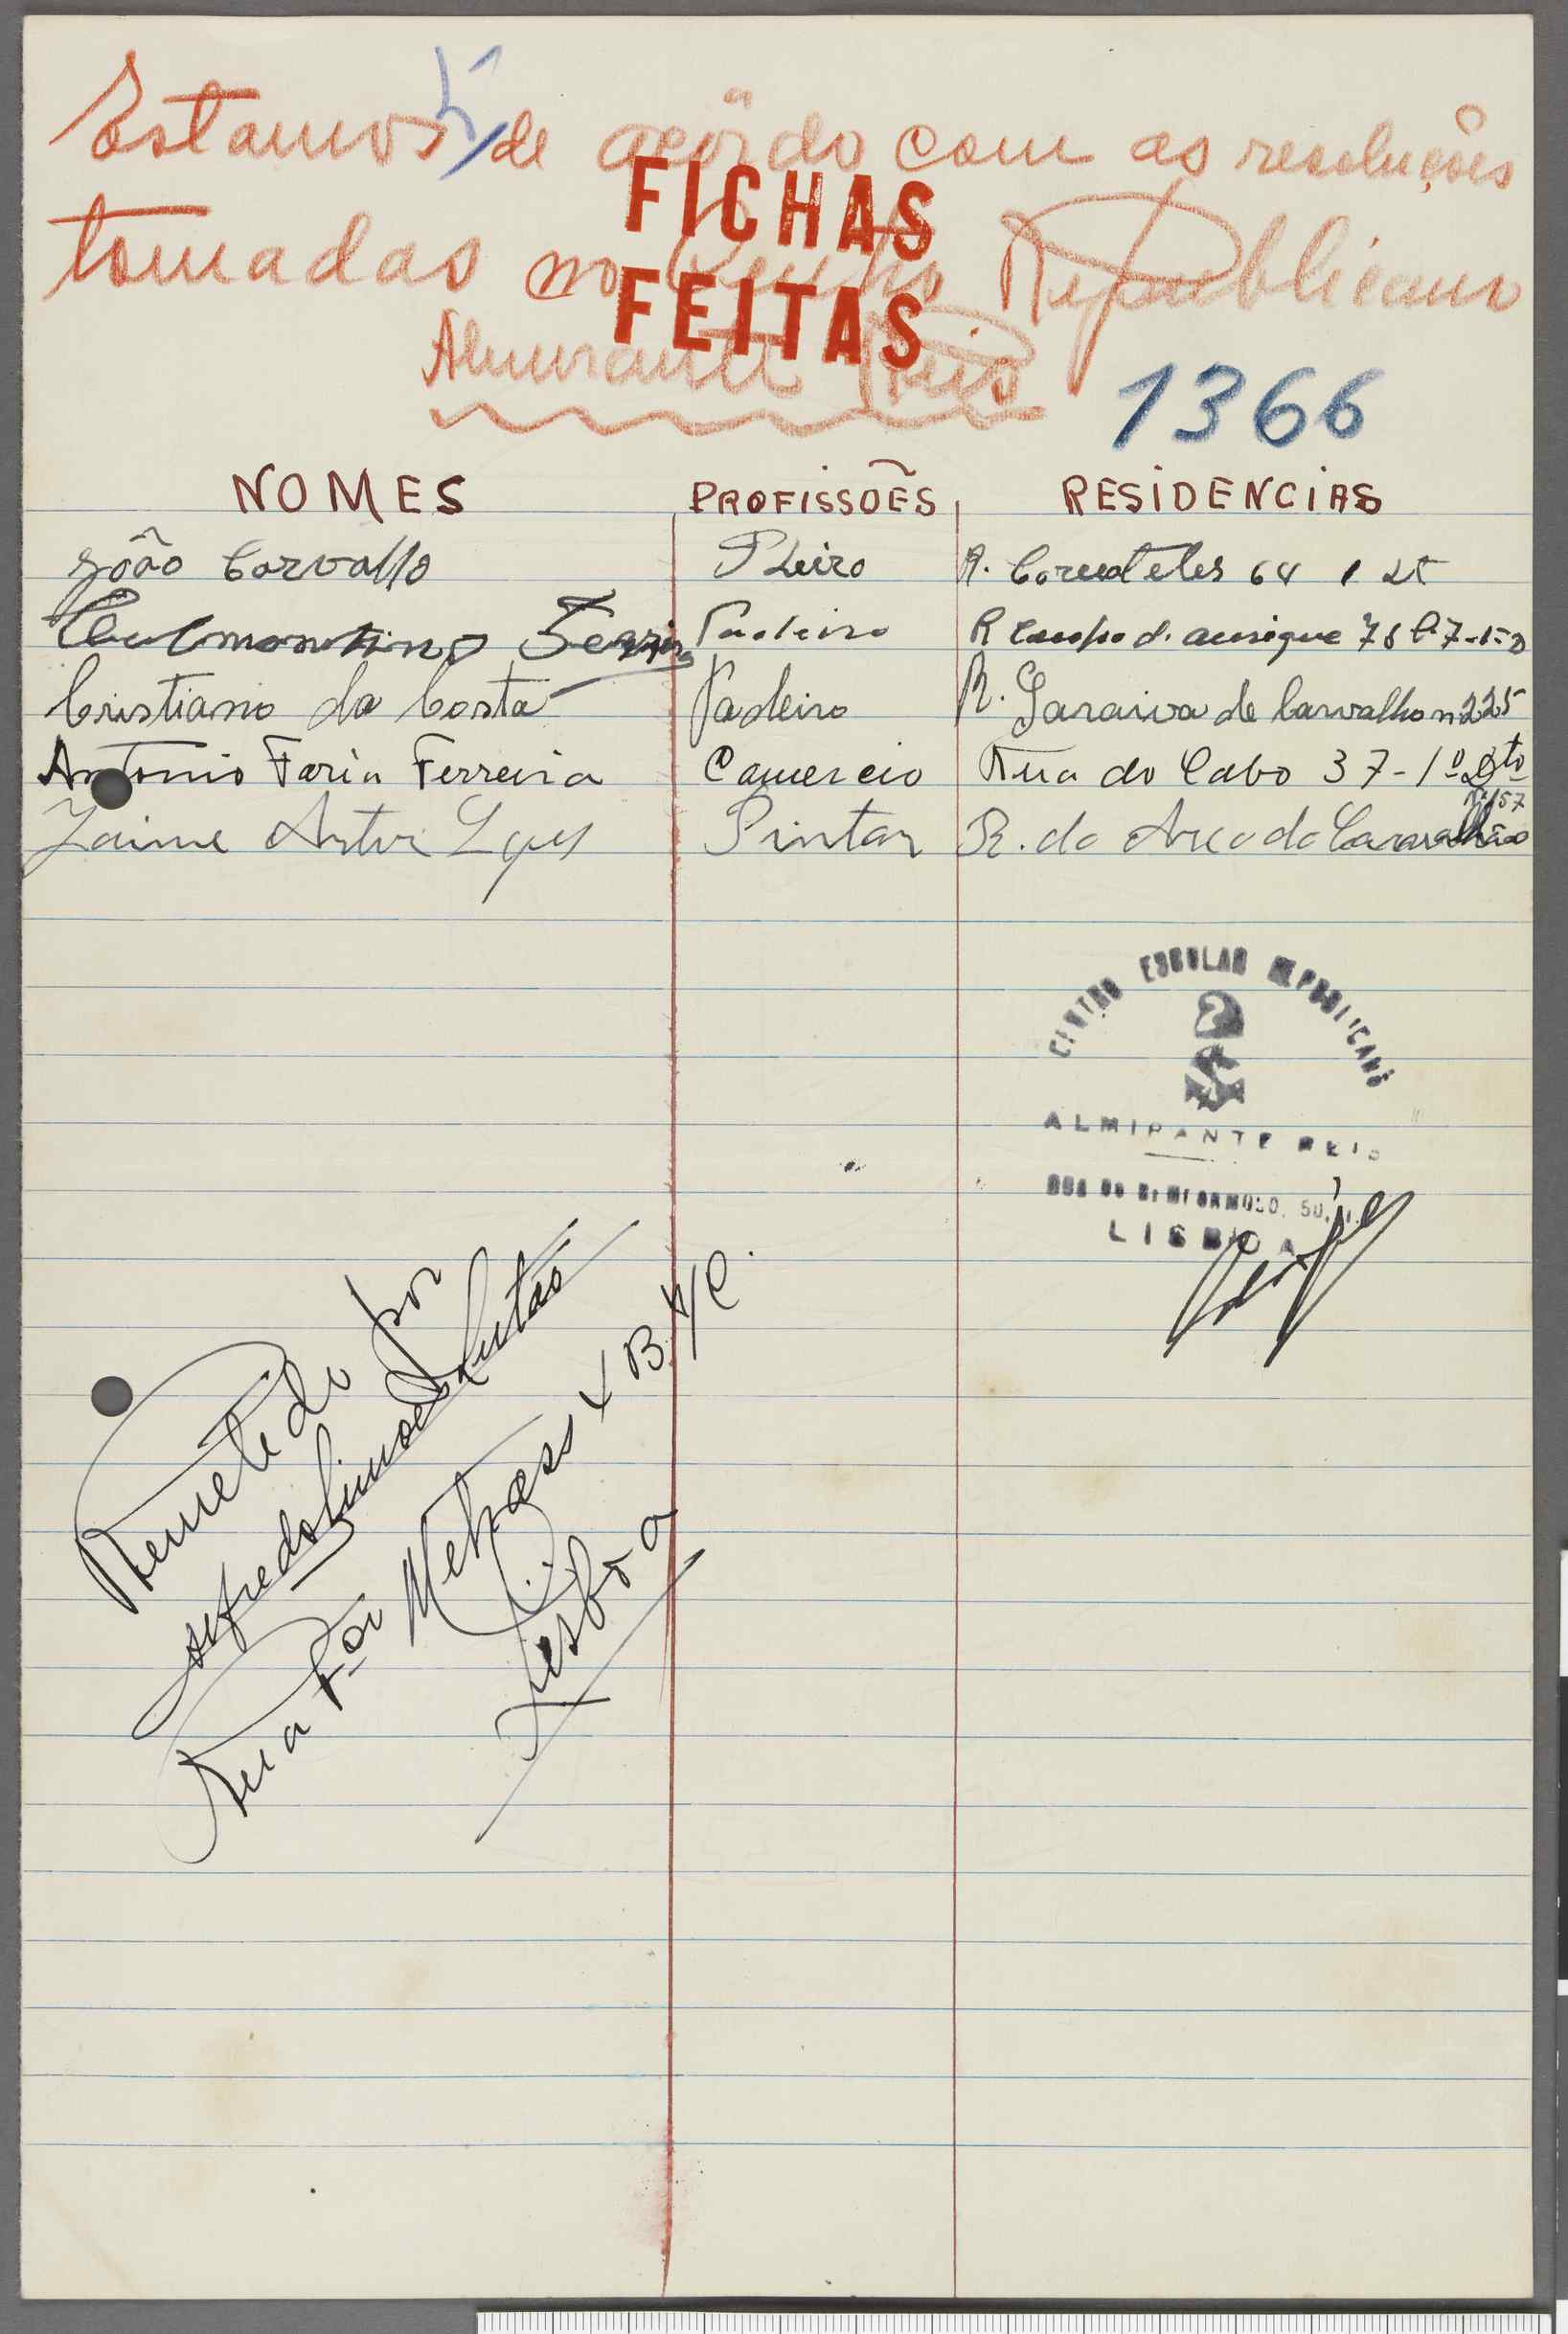 5
Estamos de acôrdo com as resoluções
tomadas no Centro Republicano
Almirante Reis
FICHAS
FEITAS
1366
NOMES PROFISSOẼS RESIDENCIAS
João Carvalho R. 64 1
Padeiro R Campo d. 78
Cristiano da Costa Padeiro R. Saraiva de Carvalho n 225
Antonio Faria Ferreira Comercio Rua do Cabo 37-1º Dto
Nº 157
Jaime Artur Lopes Pintor R. do Arco do Carvalhão
CENTRO ESCOLAR REPUBLICANO
ALMIRANTE REIS
RUA DO BEMFORMOSO, 50, 1.
LISBOA
Remetido por
Alfredo Simões Lutão
Rua
Lisboa